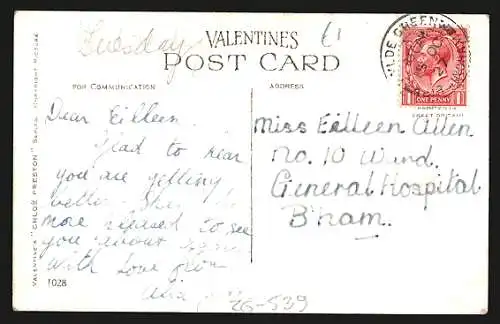 Tuesday
VALENTINES
POST CARD
FOR COMMUNICATION
ADDRESS
Dear Eilleen
Glad to hear
you are getting
better
more pleased to see
you
with love from
Miss Eilleen Allen
No. 10 Ward.
General Hospital
B'ham.
ONE PENNY
VALENTINE'S "CHLOË PRESTON" SERIES. COPYRIGHT PICTURE.
1028
26-539